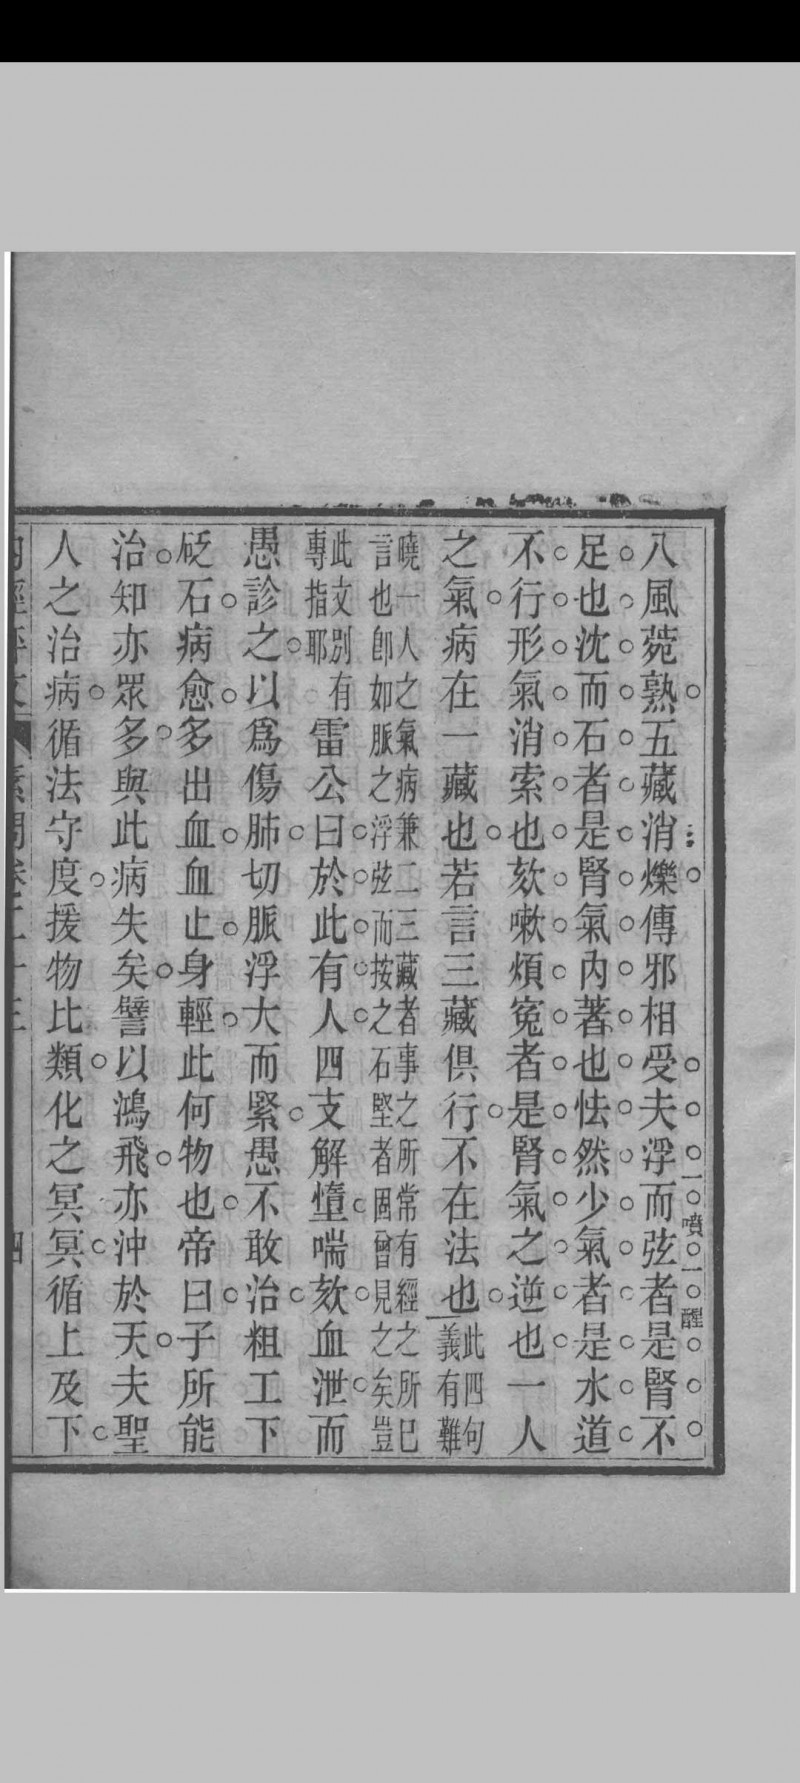 八風菀熟五藏消爍傳邪相受夫浮而弦者是腎不
一噴一醒
足也沈而石者是腎氣內著也怯然少氣者是水道
不行形氣消索也欬嗽煩寃者是腎氣之逆也一人
之氣病在一藏也若言三藏俱行不在法也此四句
義有難
曉一人之氣病兼二三藏者事之所常有經之所已
言也卽如脈之浮弦而按之石堅者固曾見之矣豈
此文別有
專指耶
雷公曰於此有人四支解憧喘欬血泄而
愚診之以爲傷肺切脈浮大而緊愚不敢治粗工下
砭石病愈多出血血止身輕此何物也帝曰子所能
治知亦眾多與此病失矣譬以鴻飛亦沖於天夫聖
人之治病循法守度援物比類化之冥冥循上及下